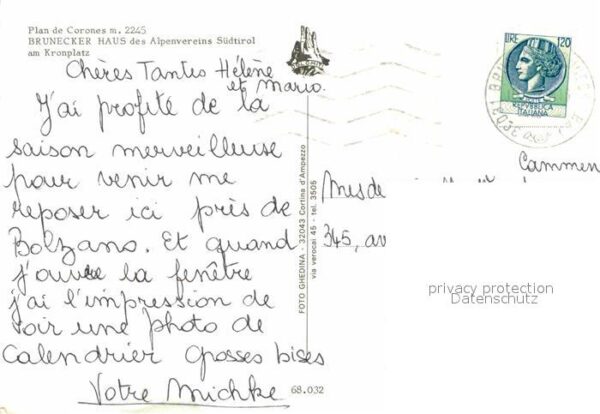 Plan de Corones m. 2245
BRUNECKER HAUS des Alpenvereins Südtirol
am Kronplatz
Chères Tantes Hélène
et Mario.
J'ai profité de la
saison merveilleuse
pour venir me
reposer ici près de
Bolzano. Et quand
j'ouvre la fenêtre
j'ai l'impression de
voir une photo de
calendrier grosses bises
Votre Michke
FOTO GHEDINA - 32043 Cortina d'Ampezzo
via verocai 45 - tel. 3505
68.032
LIRE 120
REPVBBLICA
ITALIANA
Cammen
Mesde
345, av
privacy protection
Datenschutz